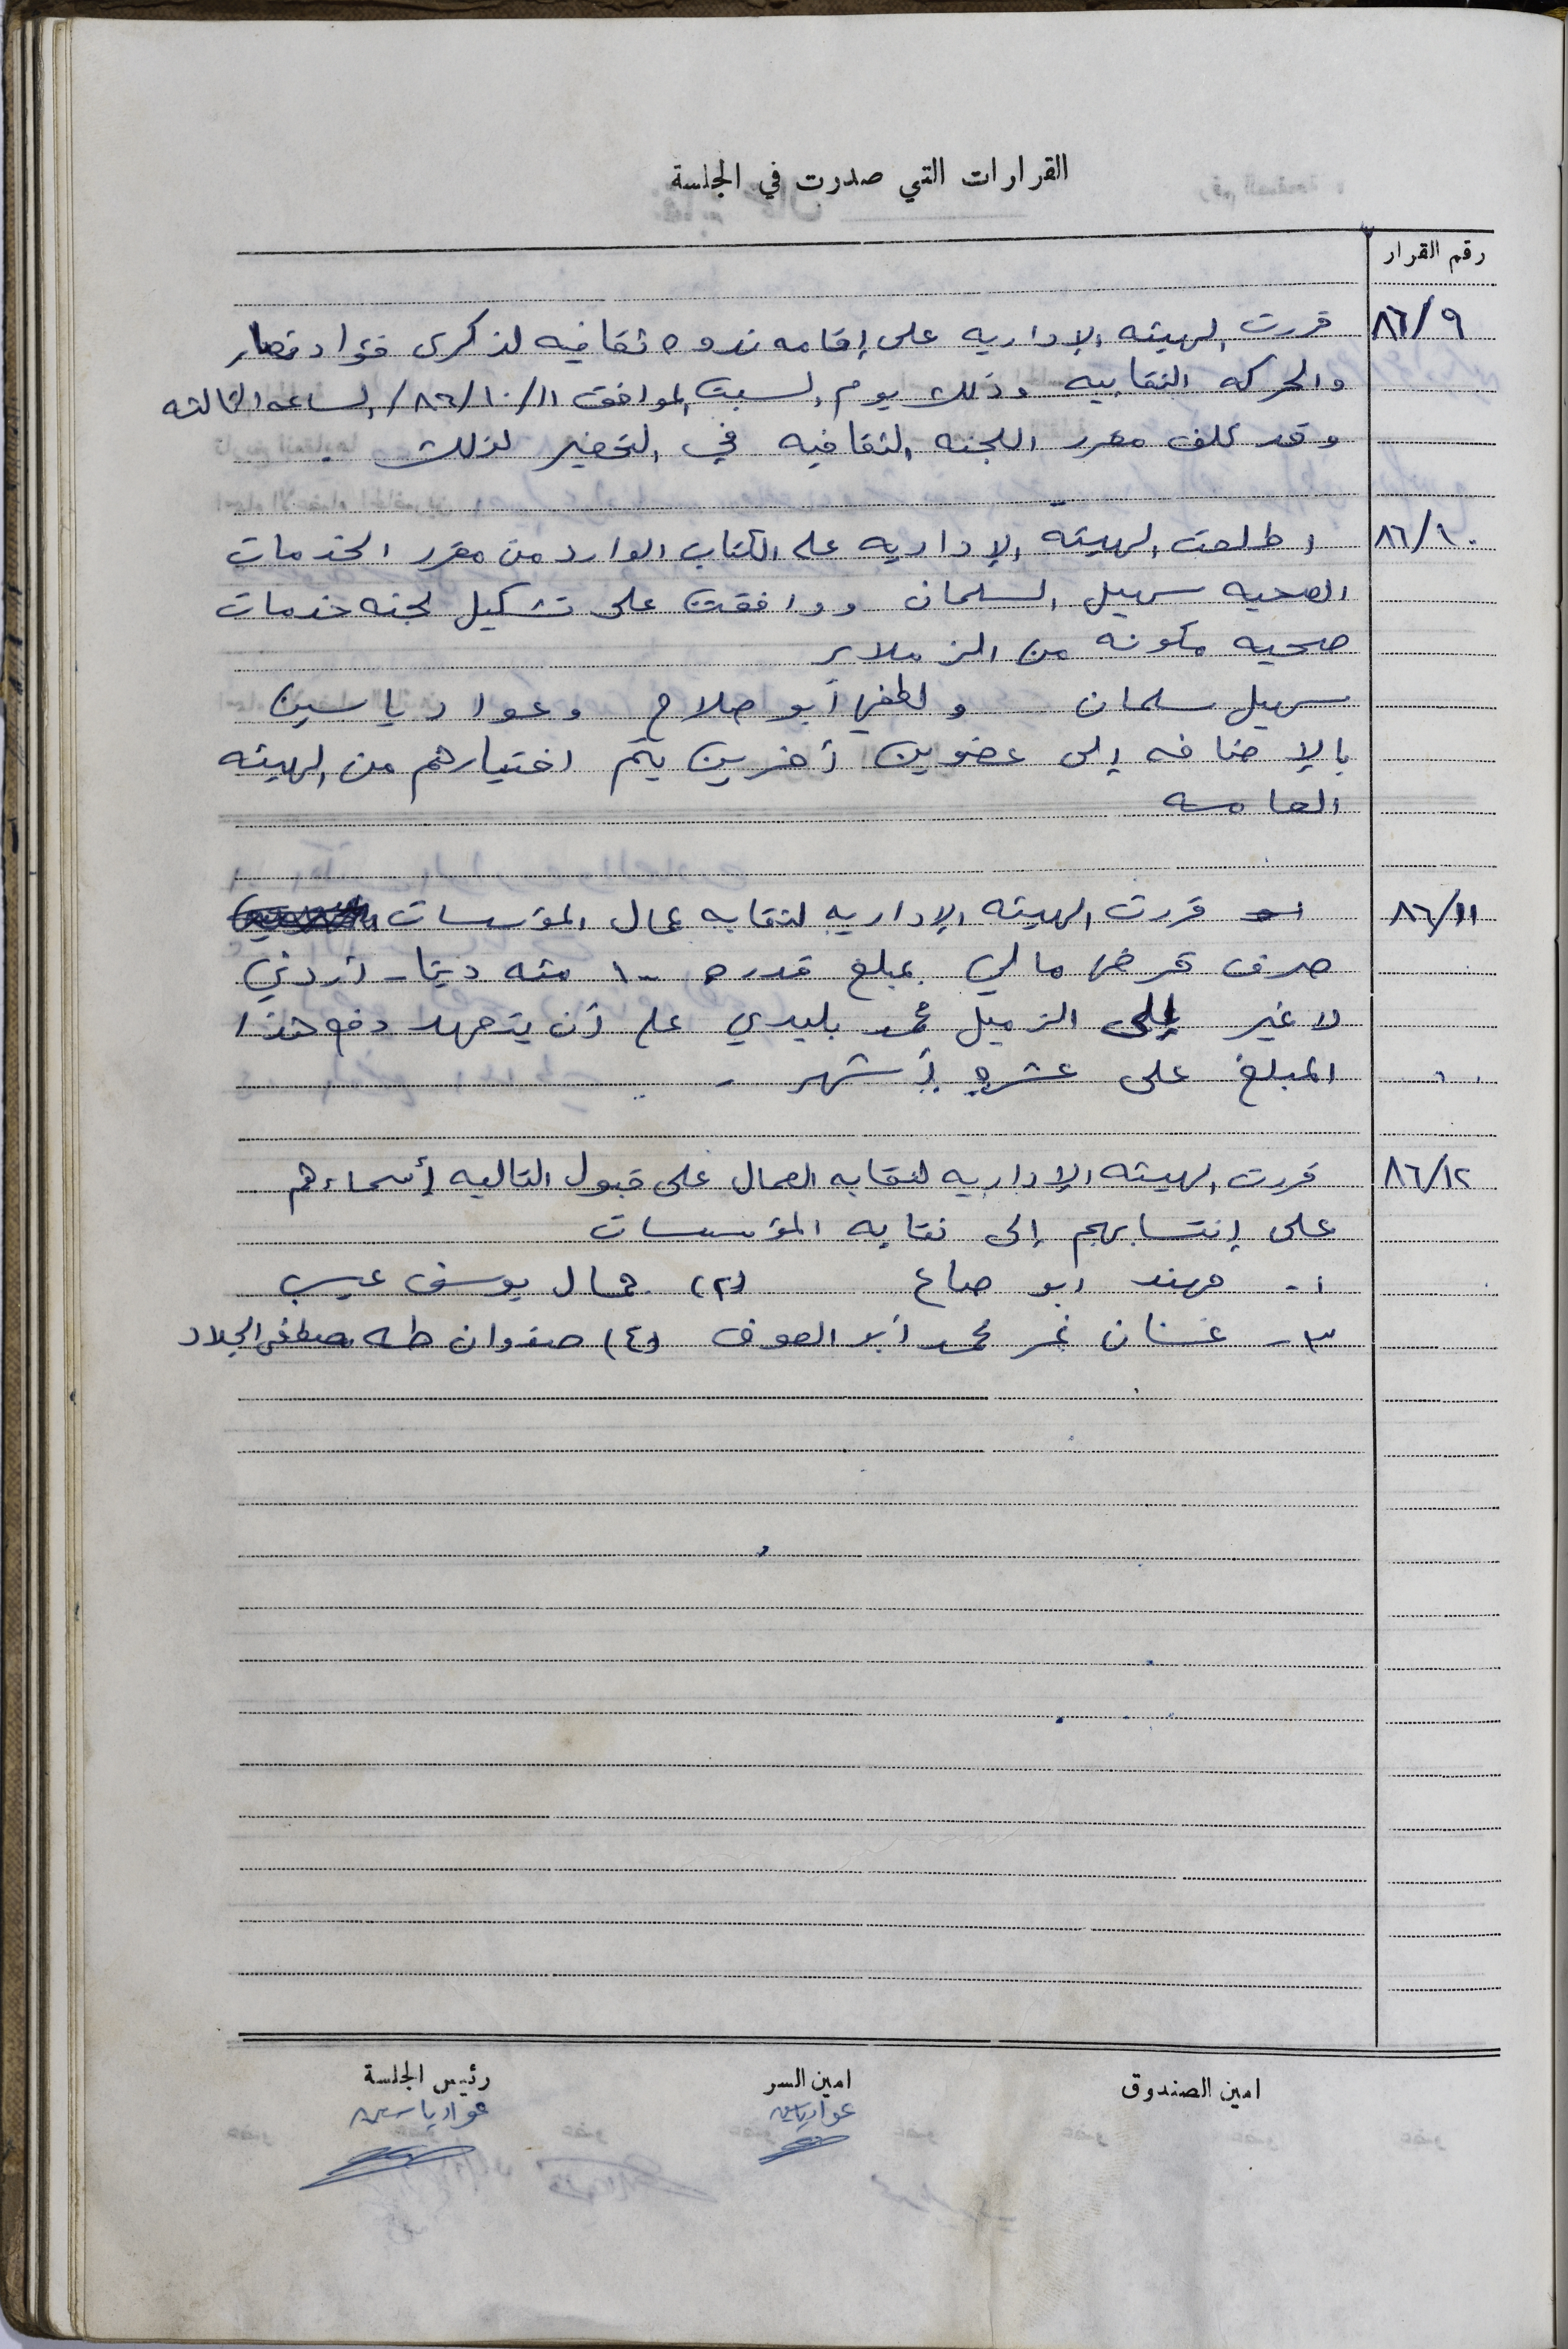 القرارات التي صدرت في الجلسة
رقم القرار
٨٦/٩ قررت الهيئه الإداريه على إقامه ندوه ثقافيه لذكرى فؤاد نصار
والحركه النقابيه وذلك يوم السبت الموافق ٨٦/١٠/١١/ الساعه الثالثه
وقد كلف مقرر اللجنه الثقافيه في التحضير لذلك .
٨٦/١٠ اطلعت الهيئة الإداريه على الكتاب الوارد من مقرر الخدمات
الصحيه سهيل السلمان ووافقت على تشكيل لجنه خدمات
صحيه مكونه من الزملاء
سهيل سلمان ولطفي أبو صلاح وعواد ياسين
بالإضافه إلى عضوين آخرين يتم اختيارهم من الهيئه
العامه
٨٦/١١ قررت الهيئه الإداريه لنقابه عمال المؤسسات
صرف قرض مالي بمبلغ قدره ١٠٠ مئه دينار أردني
لا غير إلى الزميل محمد بليدي على أن يتعهد دفع هذا
المبلغ على عشرة أشهر .
٨٦/١٢ قررت الهيئه الإداريه لنقابه العمال على قبول التاليه أسماءهم
على إنتسابهم إلى نقابه المؤسسات
١- مهند ابو صاع (٢) جمال يوسف عيسى
٣- غسان نمر محمد أبو العوف (٤) صفوان طه مصطفى الجلاد
امين الصندوق
امين السر
رئيس الجلسة
عواد ياسين
عواد ياسين